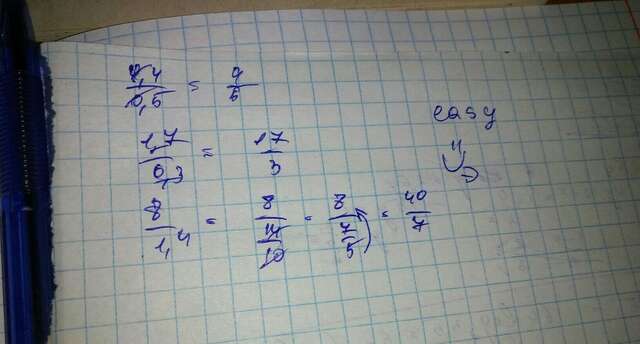 0,4/0,5 = 4/5
easy
1,7/0,3 = 17/3
8/1,4 = 8/(14/10) = 8/(7/5) = 40/7